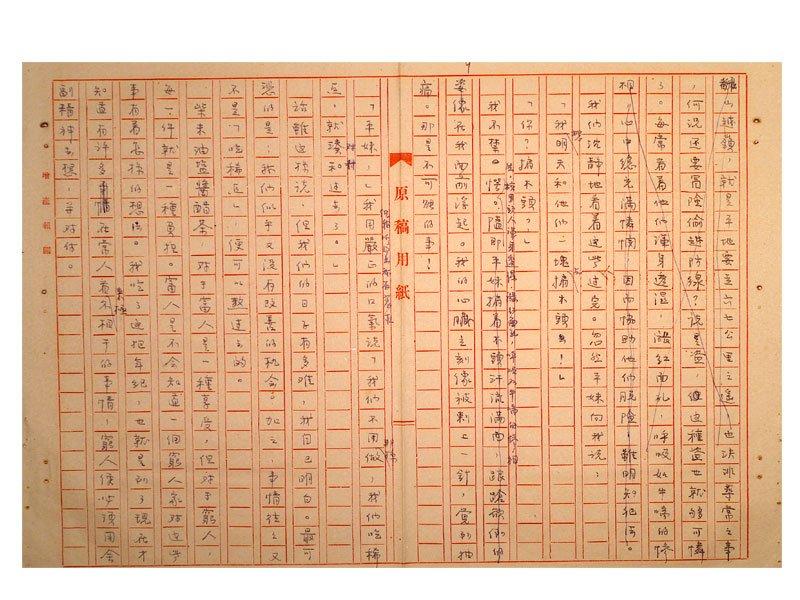 翻山越嶺,就是平地要走六七公里之遙,也決非尋常之事
,何況還要冒險偷越防線?說是盜,但這種盜也就夠可憐
了。每常看着他們渾身透濕,漲紅面孔,呼吸如牛喘的情
相,心中總充滿憐憫,因而協助他們脫險,雖明知犯法。
我們沈靜地看着這些走完。忽然平妹向我說:
「我明天和他們一塊掮木頭去!」
「你?掮木頭?」
我不禁。愕。隨即平妹掮着木頭汗流滿面,踉蹌欲倒的
姿像在我面前浮起。我的心臟立刻像被刺上一針,覺到抽
痛。那是不可能的事!
原稿用紙
「平妹,」我用嚴正的口氣說「我們不用做,我們吃稀
点,就湊和過去了。」
話雖這樣說,但我們的日子有多難,我自己明白。最可
慮的是:我們似乎又沒有改善的机会。加之,事情往往又
不是「吃稀点」便可以熬過去的。
柴米油鹽醬醋茶,對于富人是一種享受,但對于窮人,
每一件就是一種負担。富人是不会知道一個窮人家对這些
事有着怎樣的想法。我吃了這把年紀,也就是到了現在才
知道有許多事情在常人看不相干的事情,窮人便必須用全
副精神去想,去对付。
增產報國